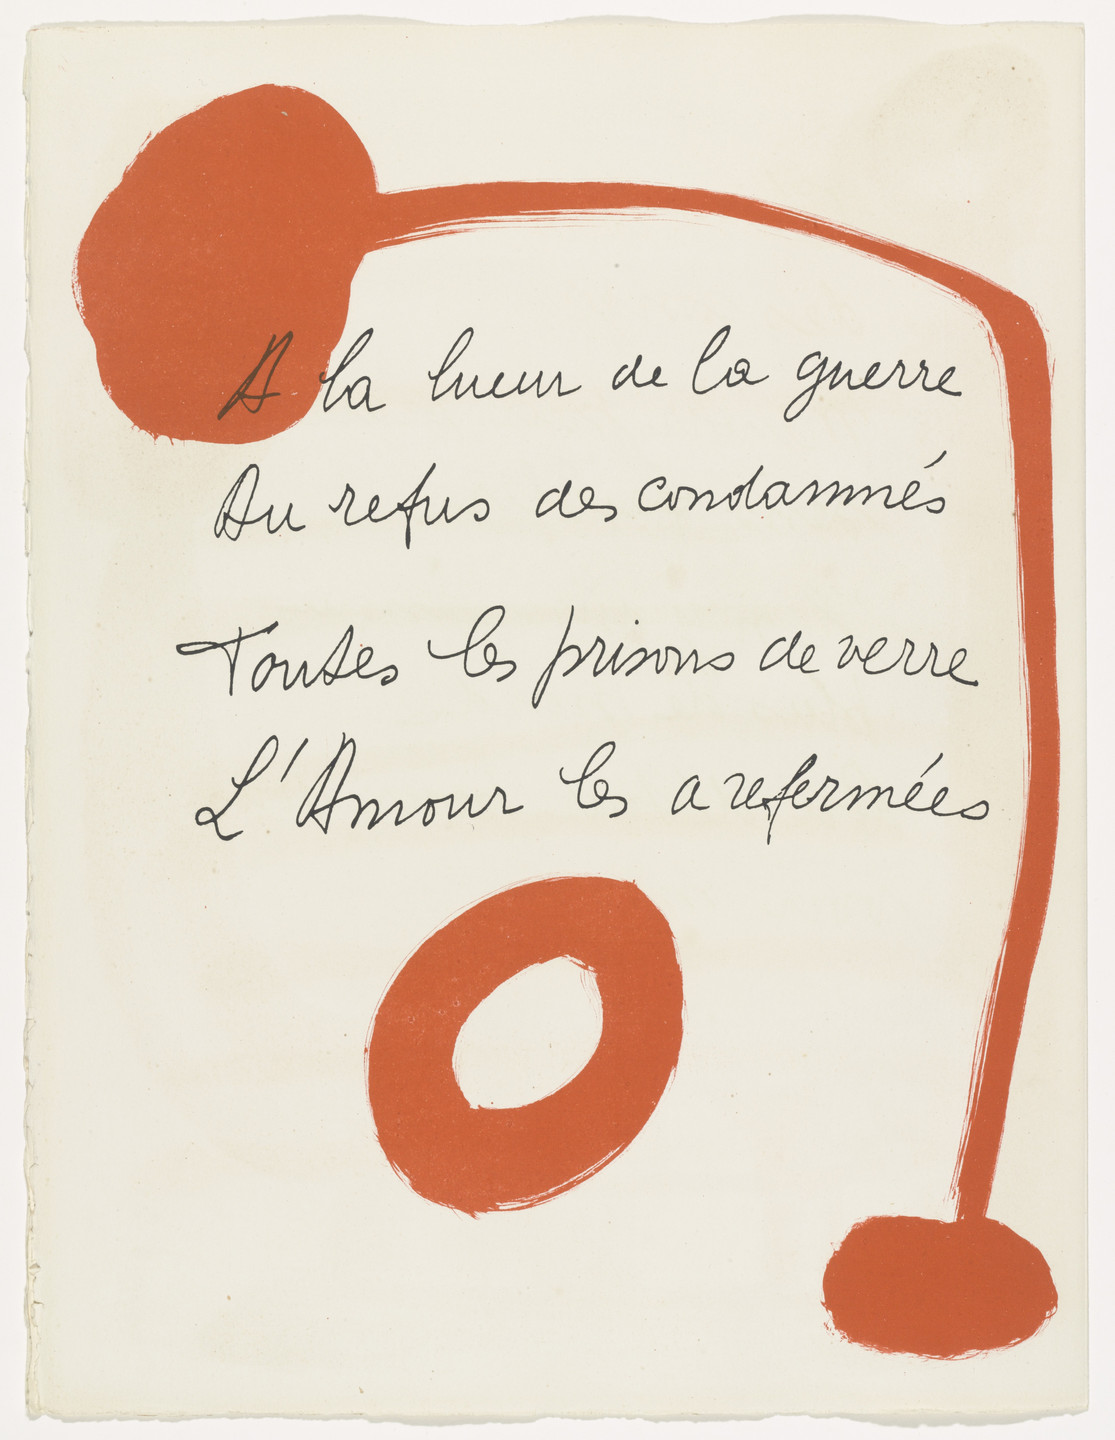 A la lueur de la guerre
Au refus des condamnés
Toutes les prisons de verre
L'Amour les a refermées